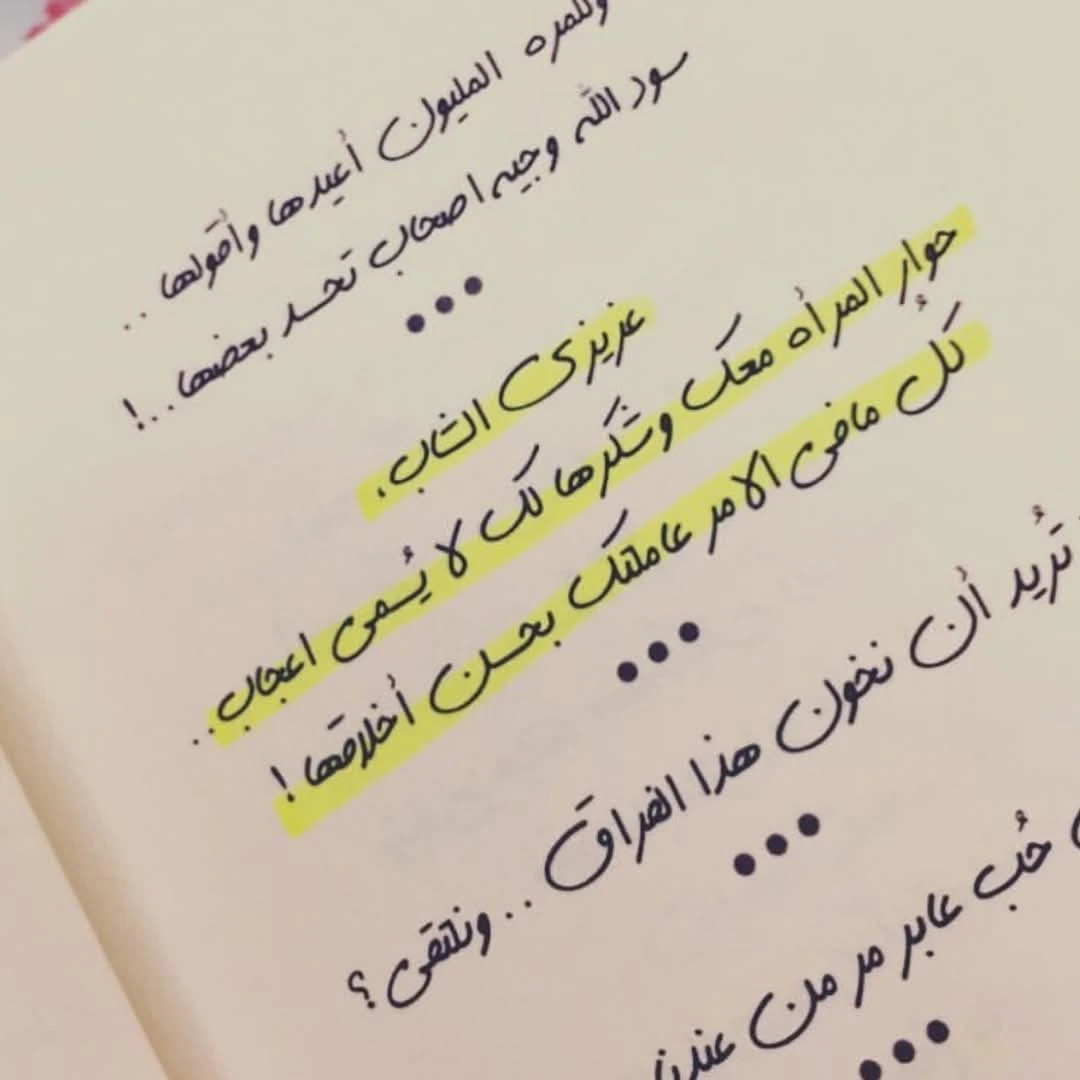 وللمره المليون أعيدها وأقولها ..
سود الله وجيه اصحاب تحسد بعضها ..!
•••
عزيزي الشاب،
حوار المرأه معك وشكرها لك لا يُسمى اعجاب ..
كُل مافي الامر عاملتك بحسن أخلاقها !
•••
تُريد أن نخون هذا الفراق .. ونلتقي ؟
•••
حُب عابر مر من عندنا
•••